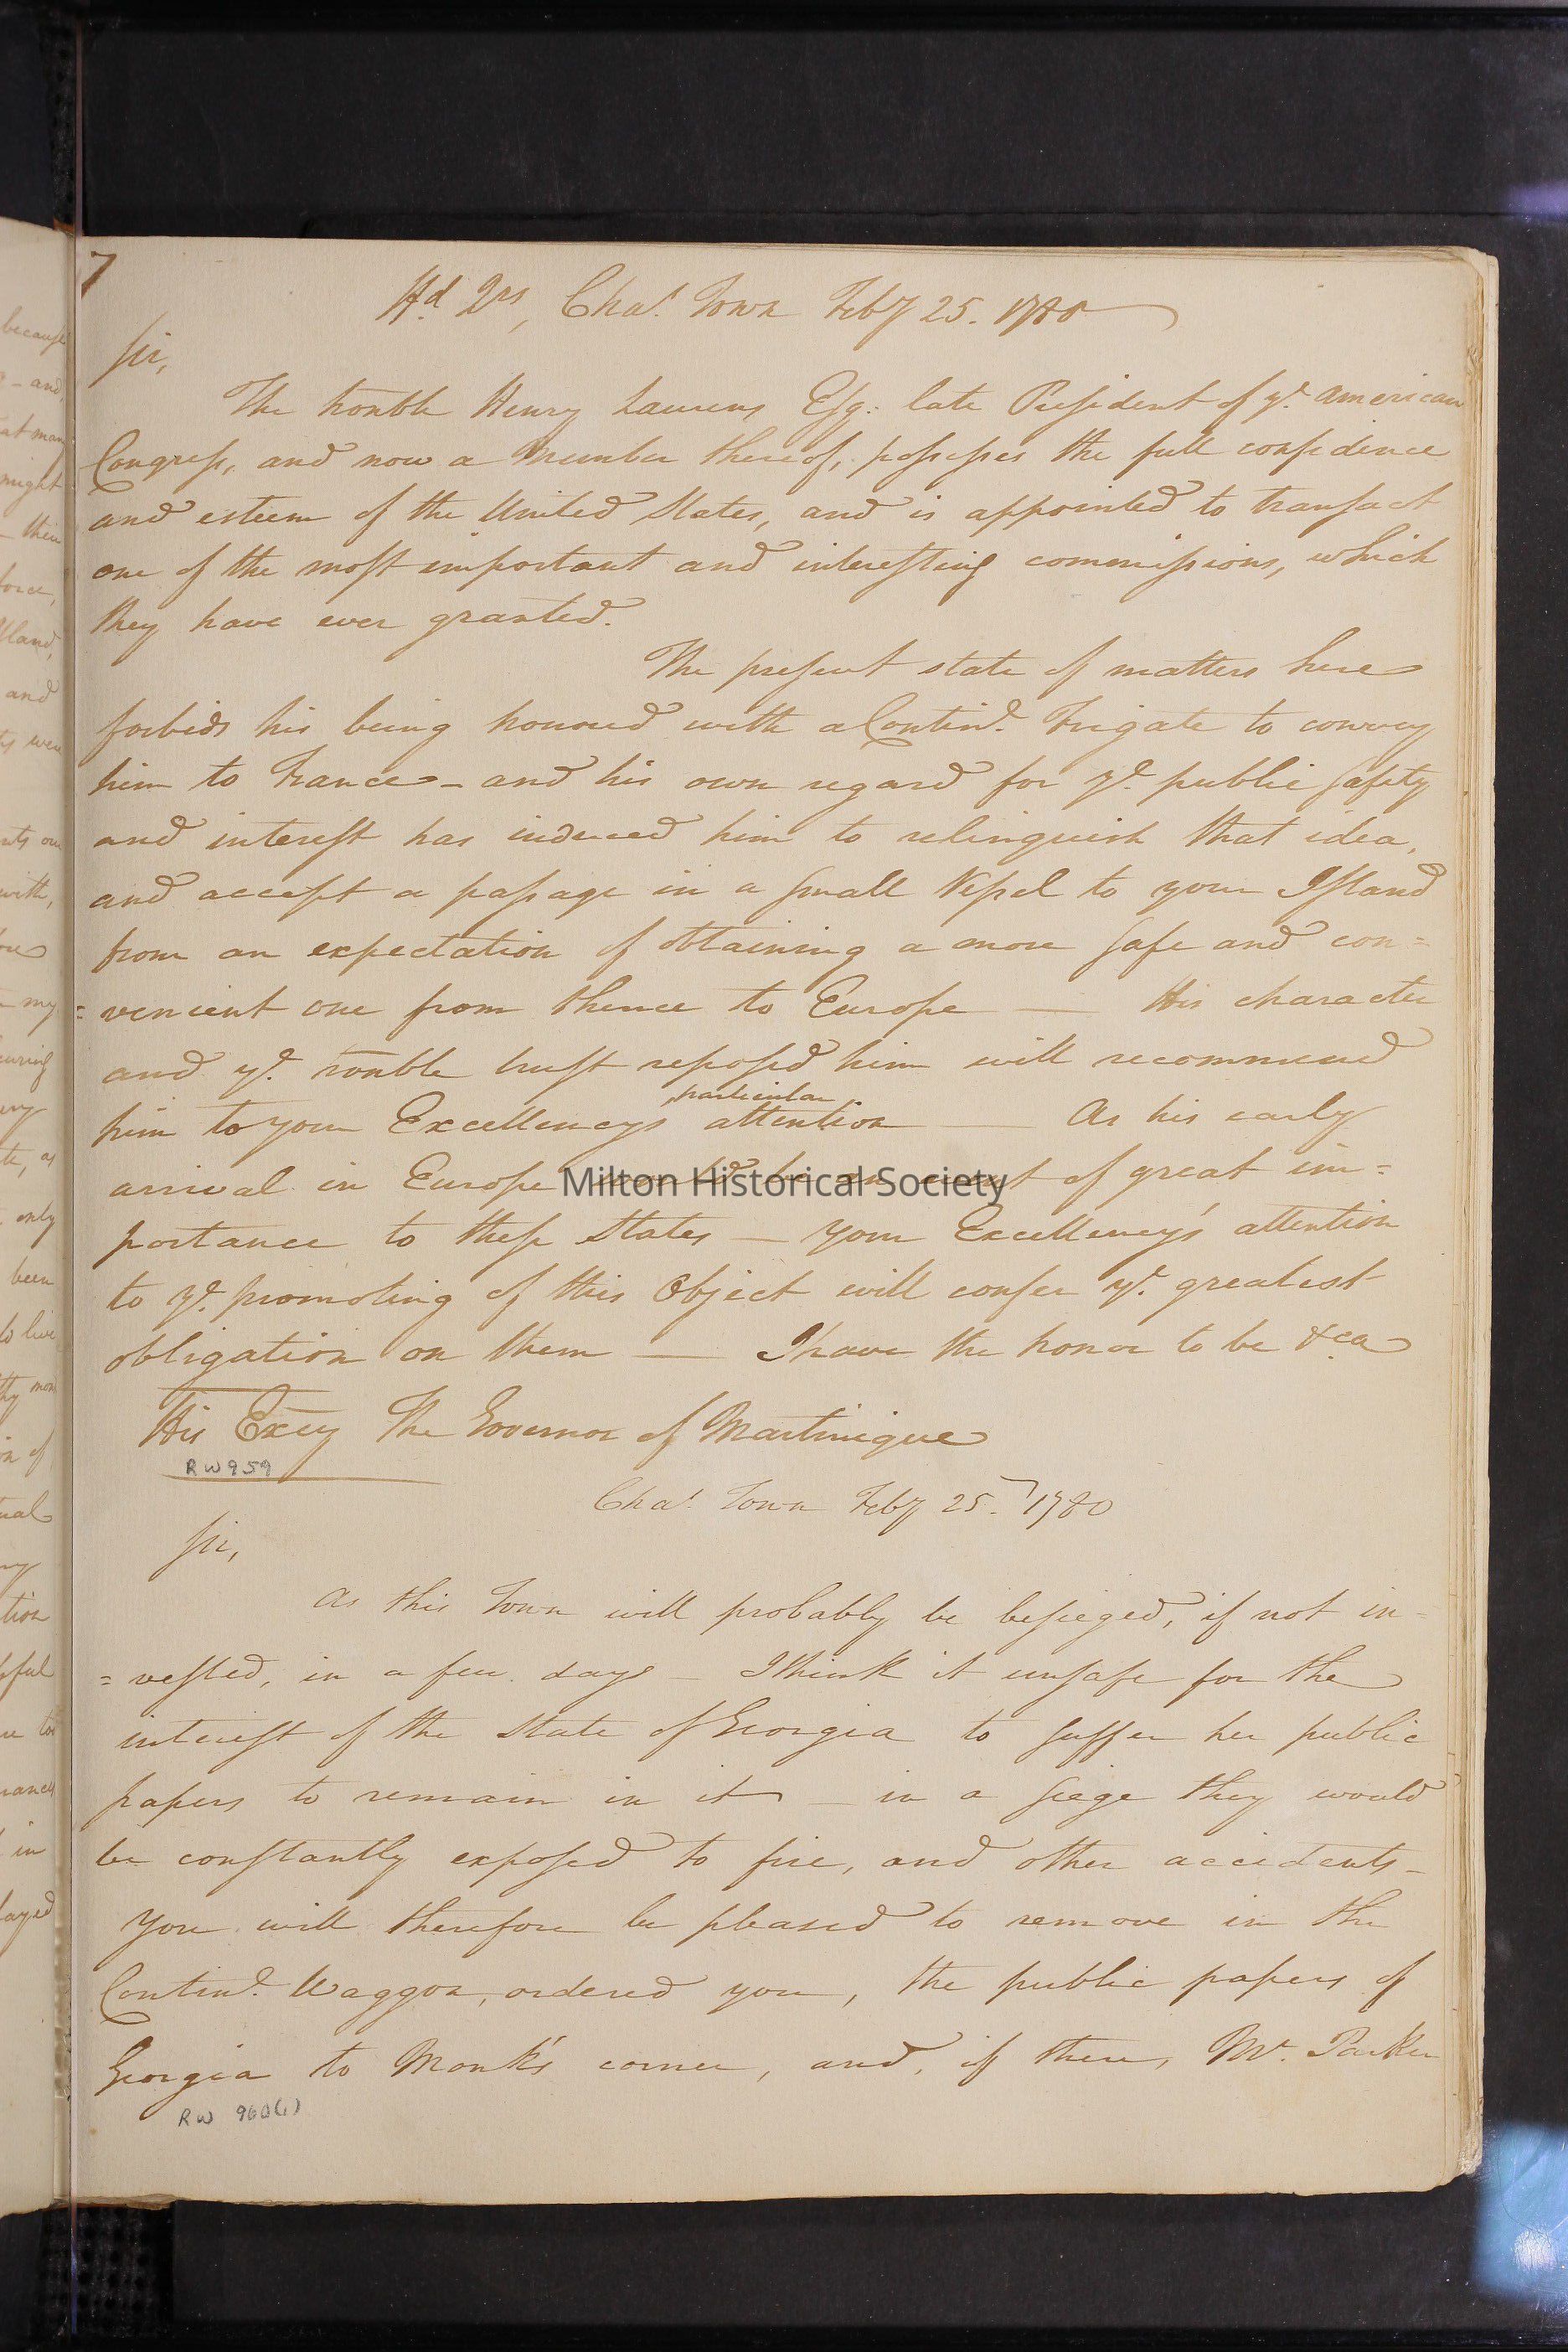 7
Hd. Qrs, Chas. Town Feby 25. 1780
Sir,
The honble Henry Laurens Esq: late President of ye. American
Congress, and now a Member thereof, possesses the full confidence
and esteem of the United States, and is appointed to transact
one of the most important and interesting commissions, which
they have ever granted.
The present state of matters here
forbids his being honored with a Contin.l Frigate to convey
him to France - and his own regard for ye. public safety
and interest has induced him to relinquish that idea,
and accept a passage in a small Vessel to your Island
from an expectation of obtaining a more safe and con=
=venient one from thence to Europe — His character
and ye. honble trust reposed him will recommend
particular
him to your Excellencys attention — As his early
arrival in Europe would be an event of great im=
portance to these States — your Excellency's attention
to ye. promoting of this Object will confer ye. greatest
obligation on them — I have the honor to be &ca
His Excy The Governor of Martinique
RW959
Chas. Town Feby 25. 1780
Sir,
As this Town will probably be besieged, if not in=
=vested, in a few days - I think it unsafe for the
interest of the State of Georgia to suffer her public
papers to remain in it in a siege they would
be constantly exposed to fire, and other accidents -
You will therefore be pleased to remove in the
Contin.l Waggon, ordered you, the public papers of
Georgia to Monk's corner, and, if there, Mr. Parker
RW 960(1)
Milton Historical Society